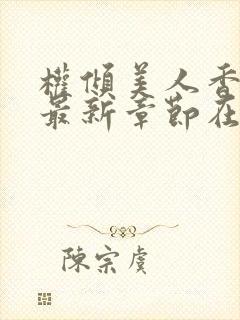 權傾美人香
最新章節在
陳宗虞